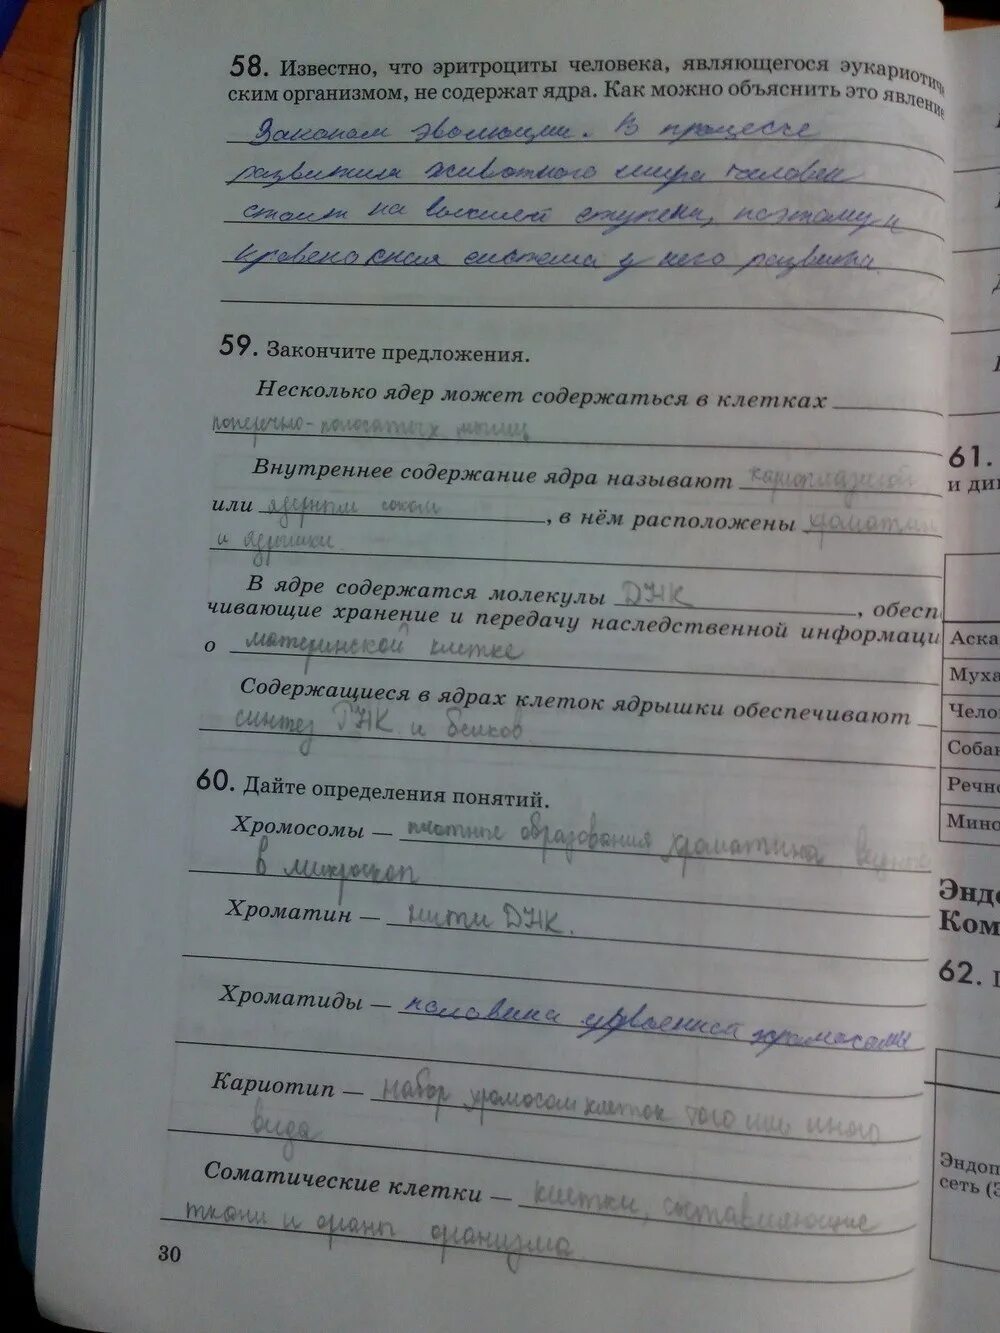 58. Известно, что эритроциты человека, являющегося эукариотиче
ским организмом, не содержат ядра. Как можно объяснить это явление
Законом эволюции. В процессе
развития животного мира человек
стоит на высшей ступени, поэтому и
кровеносная система у него развита.
59. Закончите предложения.
Несколько ядер может содержаться в клетках
поперечно-полосатых мышц
Внутреннее содержание ядра называют кариоплазмой
или ядерным соком, в нём расположены хроматин
и ядрышки.
В ядре содержатся молекулы ДНК, обесп
чивающие хранение и передачу наследственной информаци
о материнской клетке
Содержащиеся в ядрах клеток ядрышки обеспечивают
синтез РНК и белков.
60. Дайте определения понятий.
Хромосомы — плотные образования хроматина
в микроскоп
Хроматин — нити ДНК.
Хроматиды — половина удвоенной хромосомы
Кариотип — набор хромосом клеток того или иного
вида
Соматические клетки — клетки, составляющие
ткани и органы организма
30
61.
и ди
Аска
Муха
Чело
Соба
Речн
Мино
Эндо
Ком
62.
Эндоп
сеть (Э